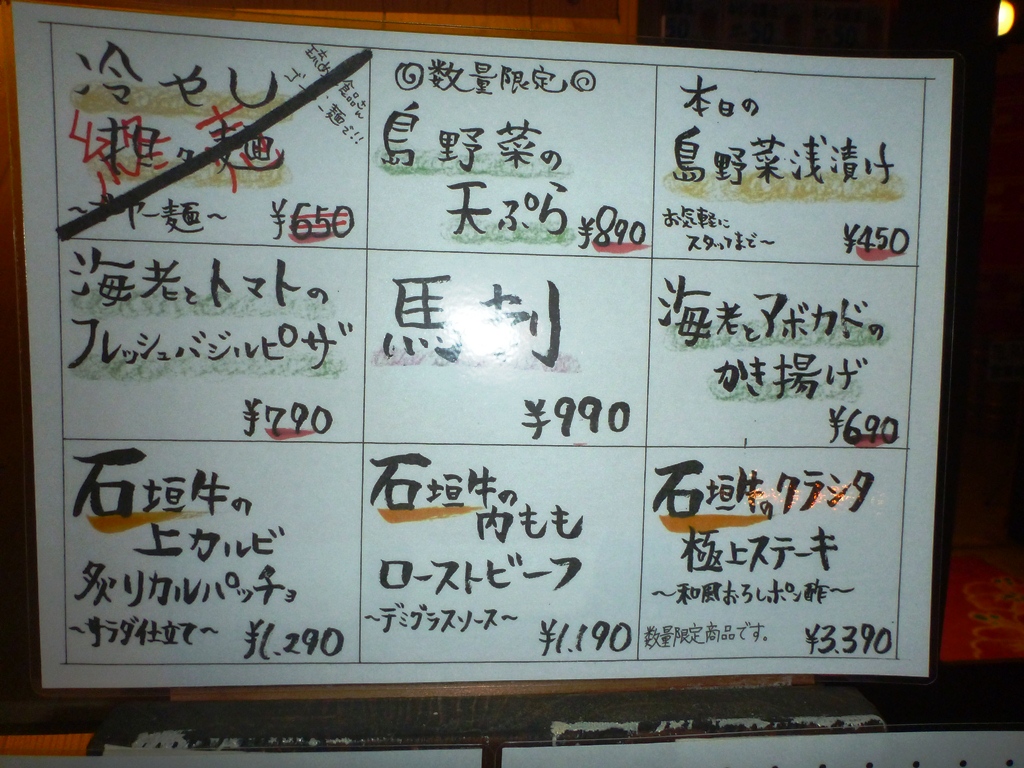 冷やし
担々麺
～ゴーヤー麺～ ¥650
食品さん
ゴーヤー麺で!!
数量限定
島野菜の
天ぷら ¥890
本日の
島野菜浅漬け
お気軽に
スタッフまで～ ¥450
海老とトマトの
フレッシュバジルピザ
¥790
馬刺
¥990
海老とアボカドの
かき揚げ
¥690
石垣牛の
上カルビ
炙りカルパッチョ
～サラダ仕立て～ ¥1.290
石垣牛の
内もも
ローストビーフ
～デミグラスソース～ ¥1.190
石垣牛のクラシタ
極上ステーキ
～和風おろしポン酢～
数量限定商品です。 ¥3.390